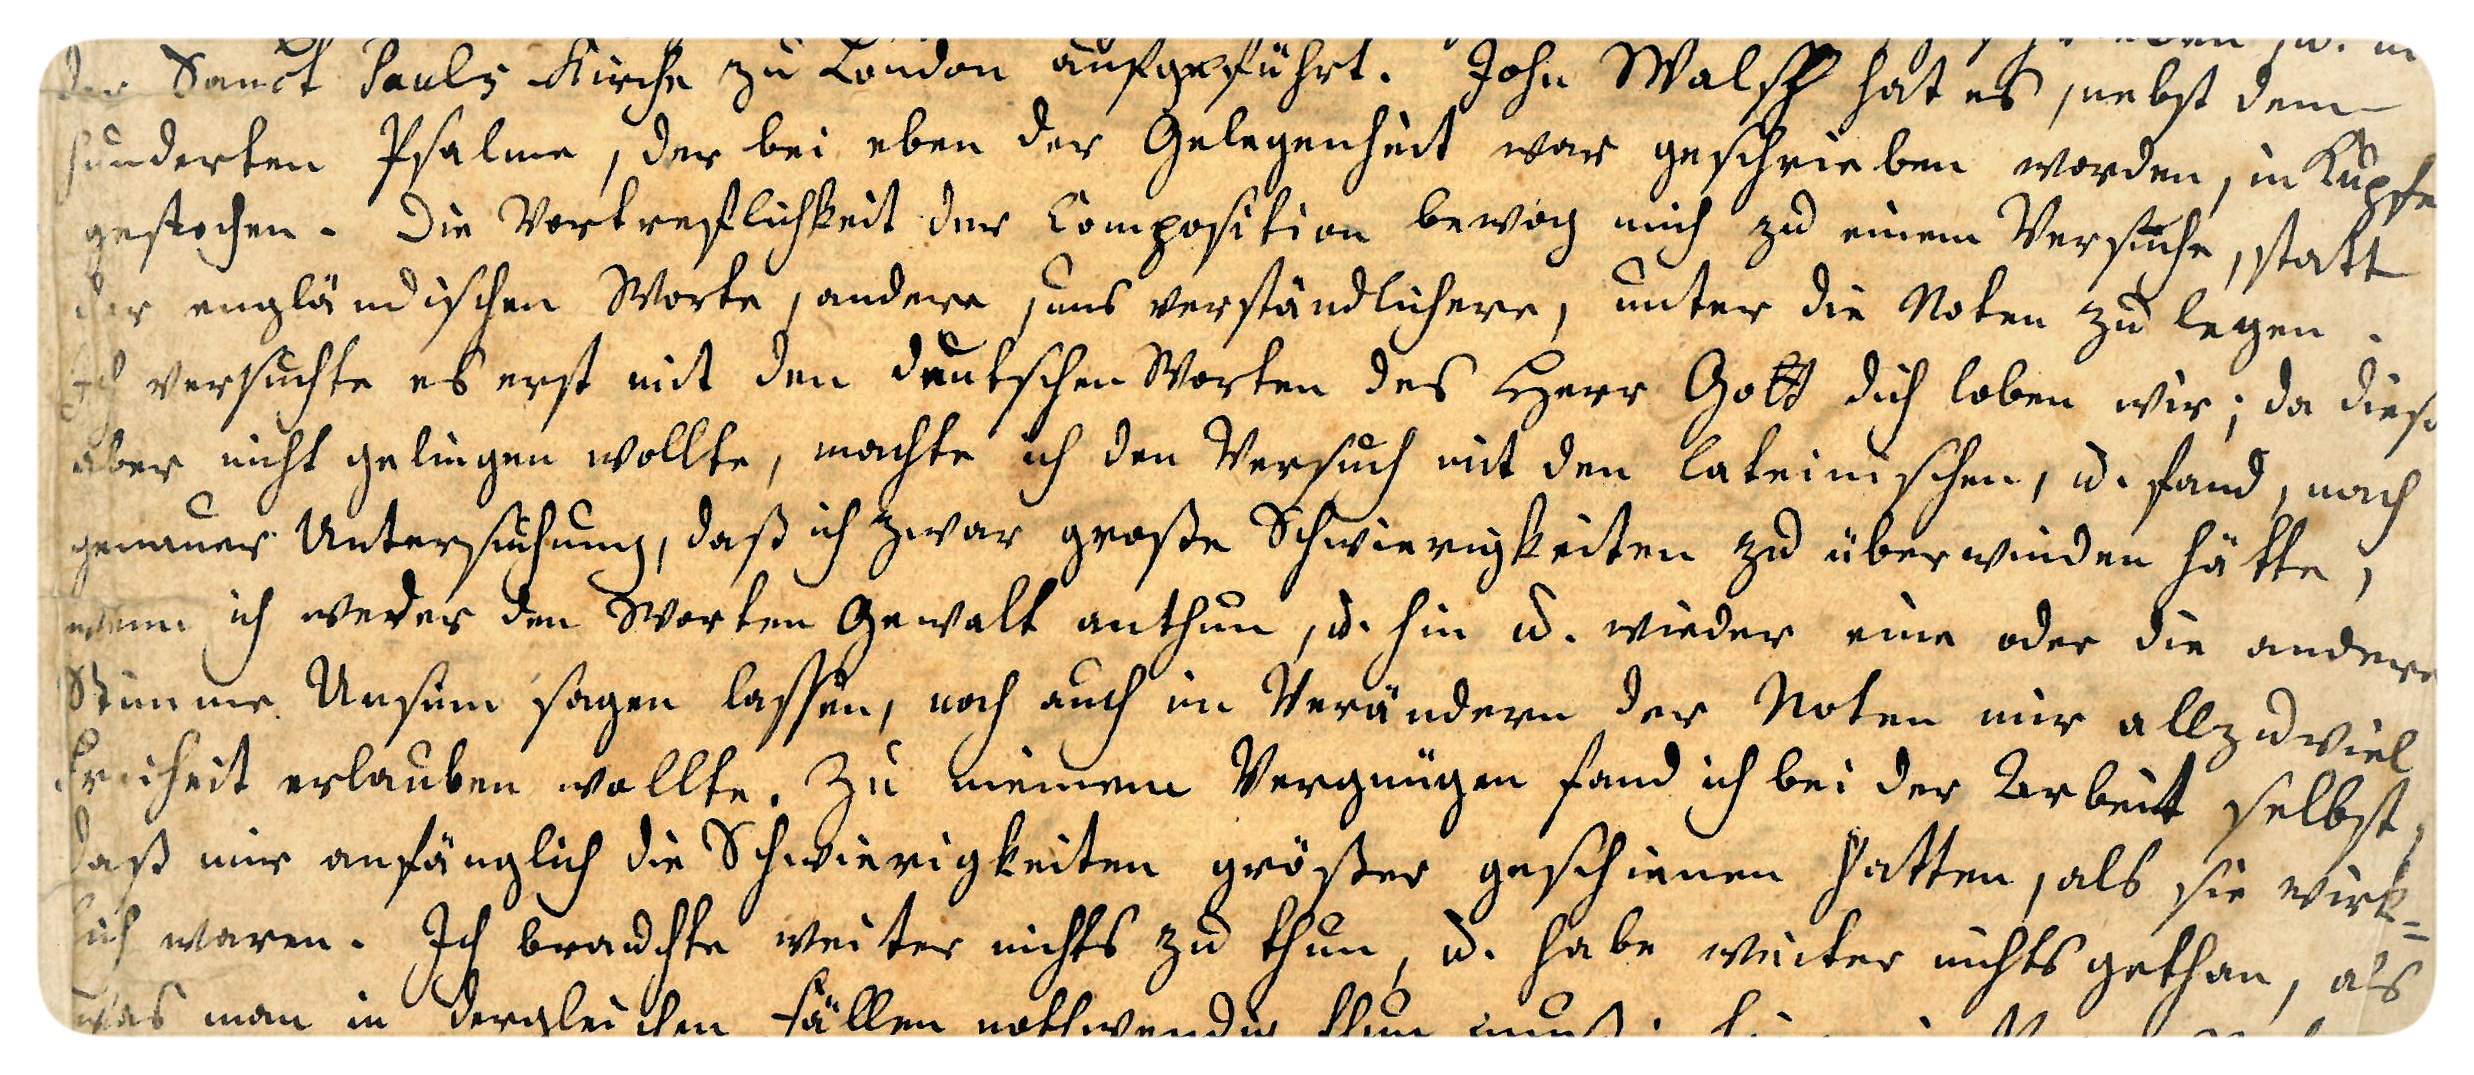 der Sanct Pauls Kirche zu London aufgeführt. John Walsh hat es, nebst dem
hunderten Psalme, der bei eben der Gelegenheit war geschrieben worden, in Kupfe
gestochen. Die Vortreflichkeit der Composition bewog mich zu einem Versuche, statt
der engländischen Worte, andere, uns verständlichere, unter die Noten zu legen.
Ich versuchte es erst mit den deutschen Worten des Herr Gott dich loben wir; da dies
aber nicht gelingen wollte, machte ich den Versuch mit den lateinischen, u. fand, nach
genauer Untersuchung, daß ich zwar große Schwierigkeiten zu überwinden hätte,
wenn ich weder den Worten Gewalt anthun, u. hin u. wieder eine oder die andere
Stimme Unsinn sagen lassen, noch auch im Verändern der Noten mir allzuviel
Freiheit erlauben wollte. Zu meinem Vergnügen fand ich bei der Arbeit selbst,
daß mir anfänglich die Schwierigkeiten größer geschienen hatten, als sie wirk=
lich waren. Ich brauchte weiter nichts zu thun, u. habe weiter nichts gethan, als
was man in dergleichen Fällen nothwendig thun muß;